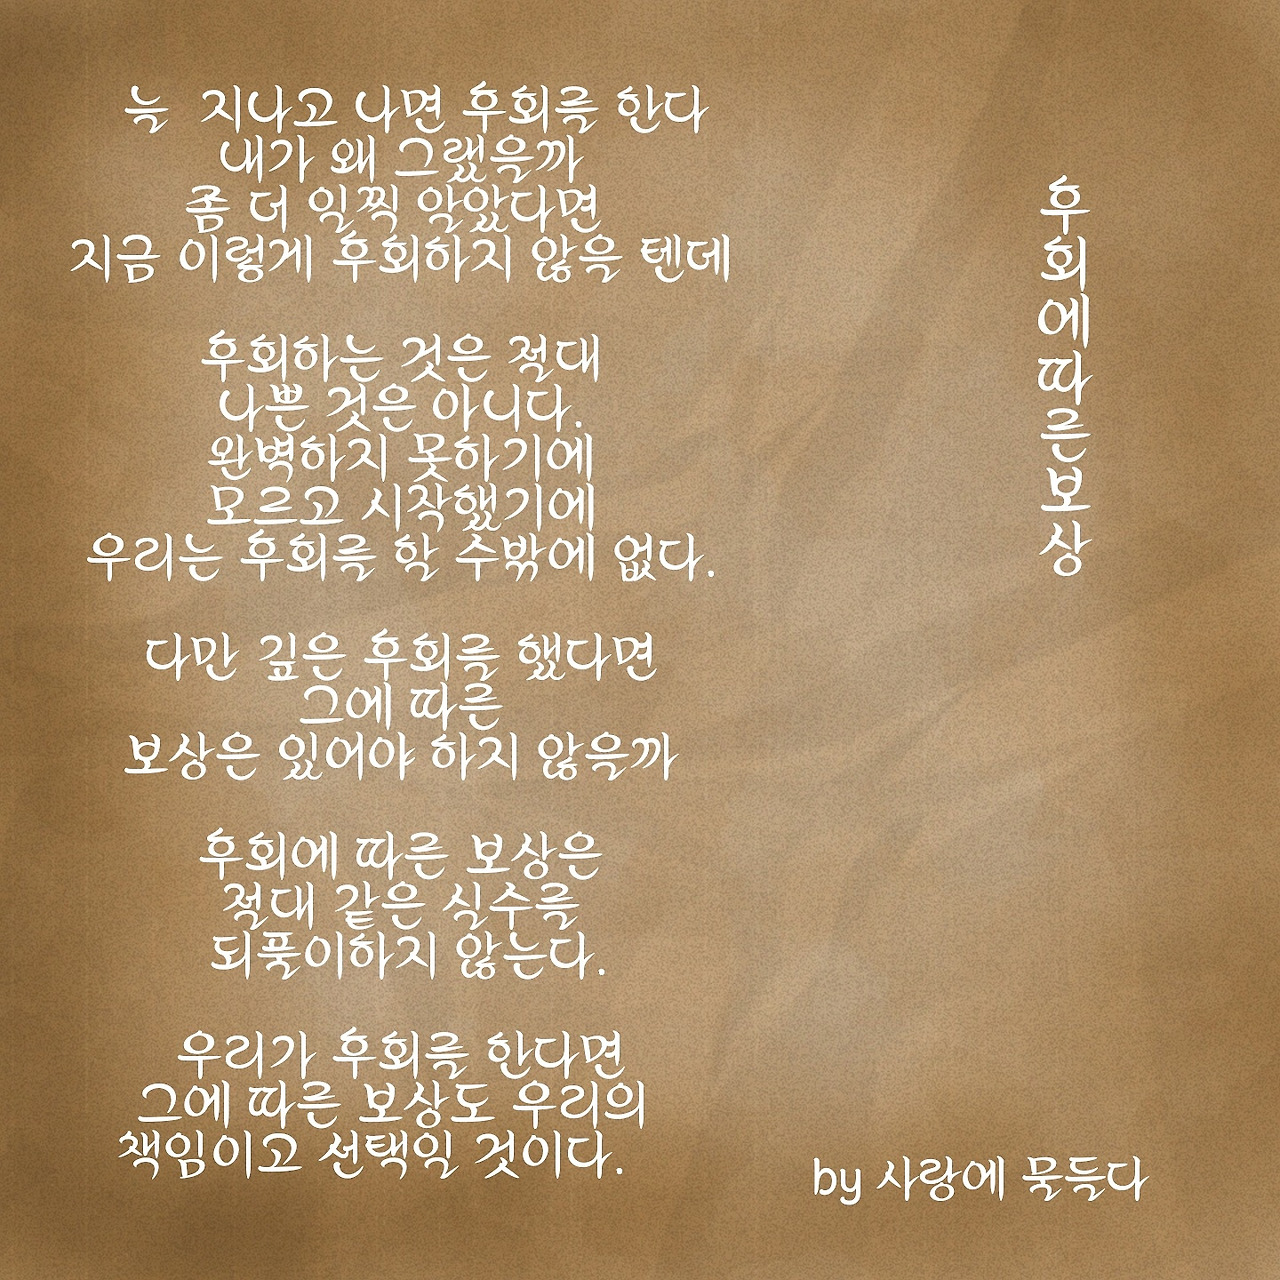 늘 지나고 나면 후회를 한다
내가 왜 그랬을까
좀 더 일찍 알았다면
지금 이렇게 후회하지 않을 텐데
후회하는 것은 절대
나쁜 것은 아니다.
완벽하지 못하기에
모르고 시작했기에
우리는 후회를 할 수밖에 없다.
다만 깊은 후회를 했다면
그에 따른
보상은 있어야 하지 않을까
후회에 따른 보상은
절대 같은 실수를
되풀이하지 않는다.
우리가 후회를 한다면
그에 따른 보상도 우리의
책임이고 선택일 것이다.
후회에따른보상
by 사랑에 물들다